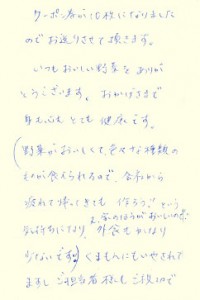 クーポン券が10枚になりました
のでお送りさせて頂きます。
いつもおいしい野菜をありが
とうございます。おかげさまで
身も心もとても健康です。
(野菜がおいしくて、色々な種類の
ものが食べられるので、会社から
疲れて帰ってきても 作ろう、という
気持ちになり、外食もかなり
、家のほうがおいしいので
少ないです) くまもんにもいやされて
ますし ご担当者様もご親切で